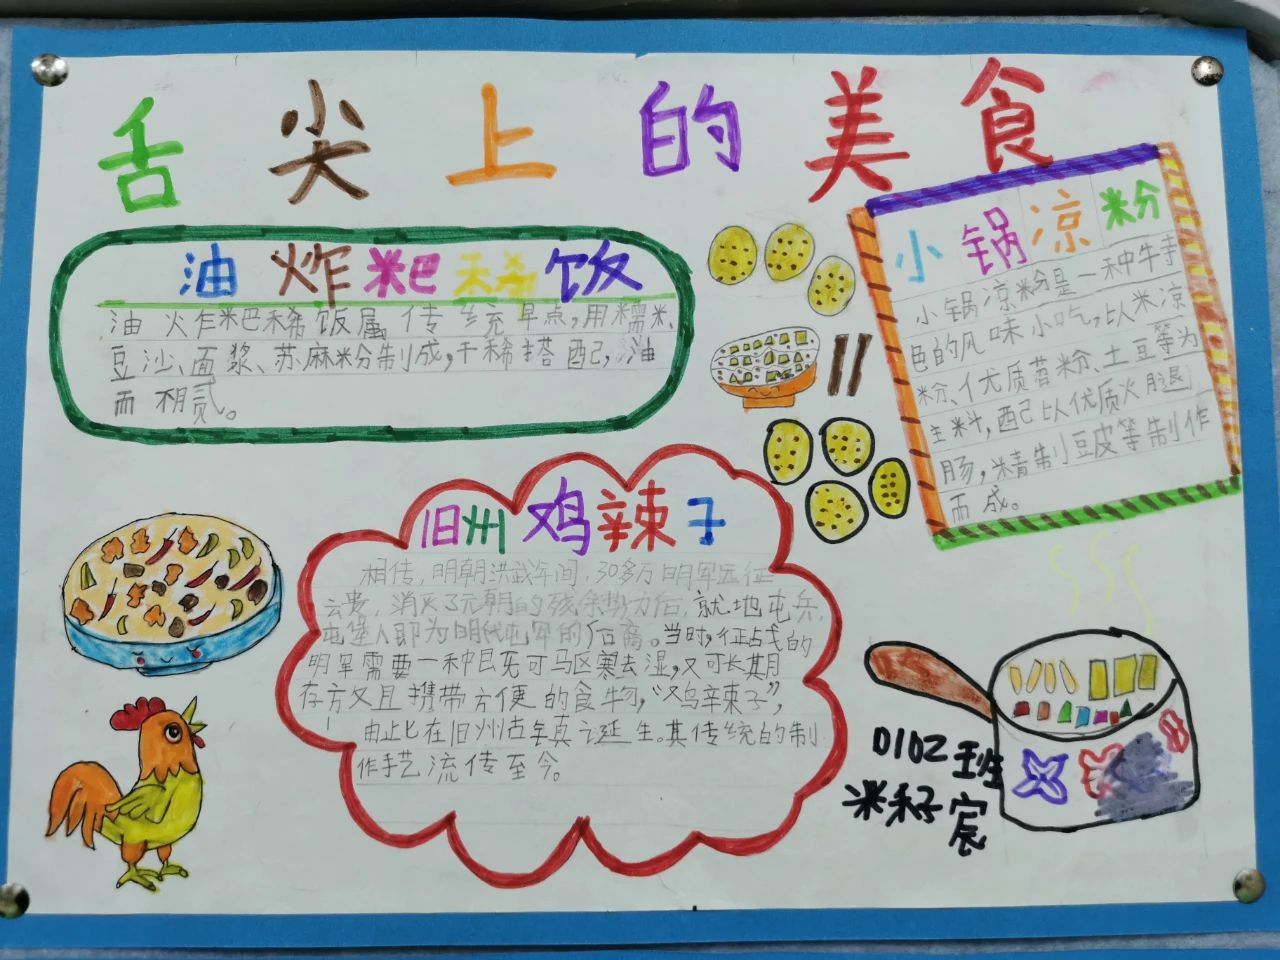 舌尖上的美食
油炸粑稀饭
油炸粑稀饭属传统早点,用糯米、
豆沙、面浆、苏麻粉制成,干稀搭配,油
而不腻。
小锅凉粉
小锅凉粉是一种牛手
色的风味小吃,以米凉
粉、优质苕粉、土豆等为
主料,配以优质火腿
肠,精制豆皮等制作
而成。
旧州鸡辣子
相传,明朝洪武年间,30多万明军远征
云贵,消灭了元朝的残余势力后,就地屯兵,
屯堡人即为明代屯军的后裔。当时,征战的
明军需要一种既可驱寒去湿,又可长期
存放又且携带方便的食物,“鸡辣子”,
由此在旧州古镇诞生。其传统的制
作手艺流传至今。
0102班
米籽宸